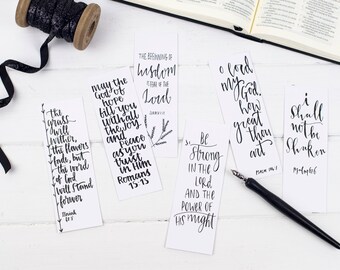 the
grass
withers,
the flowers
fade, but
the word
of God
will stand
forever
Isaiah
may the
God of
hope
fill you
with all
the joy
and peace
as you
trust
in Him
Romans
15:13
THE BEGINNING OF
wisdom
THE
LORD
BE
Strong
IN THE
LORD
AND THE
POWER OF
HIS Might
o lord
my God,
how
great
thou
art
PSALM
i
shall
not be
Shaken